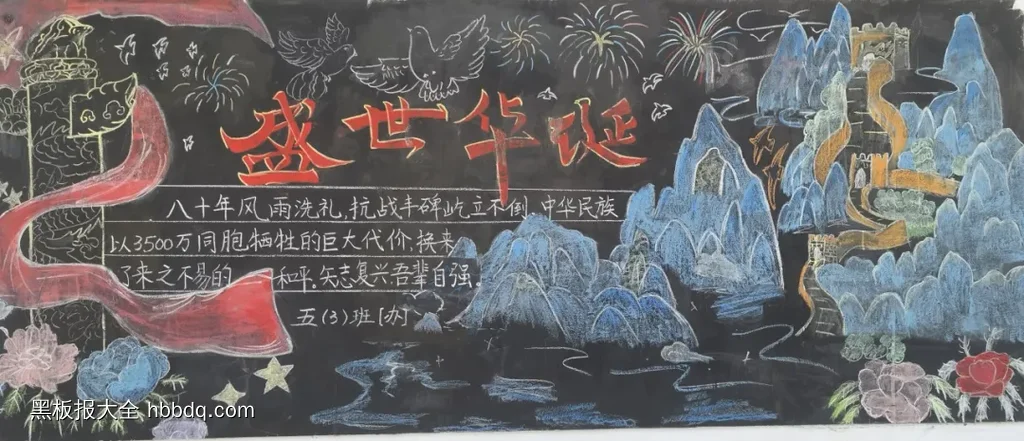 盛世华诞
八十年风雨洗礼,抗战丰碑屹立不倒 中华民族
以3500万同胞牺牲的巨大代价,换来
了来之不易的 和平。矢志复兴吾辈自强。
五(3)班[办]
黑板报大全 hbbdq.com